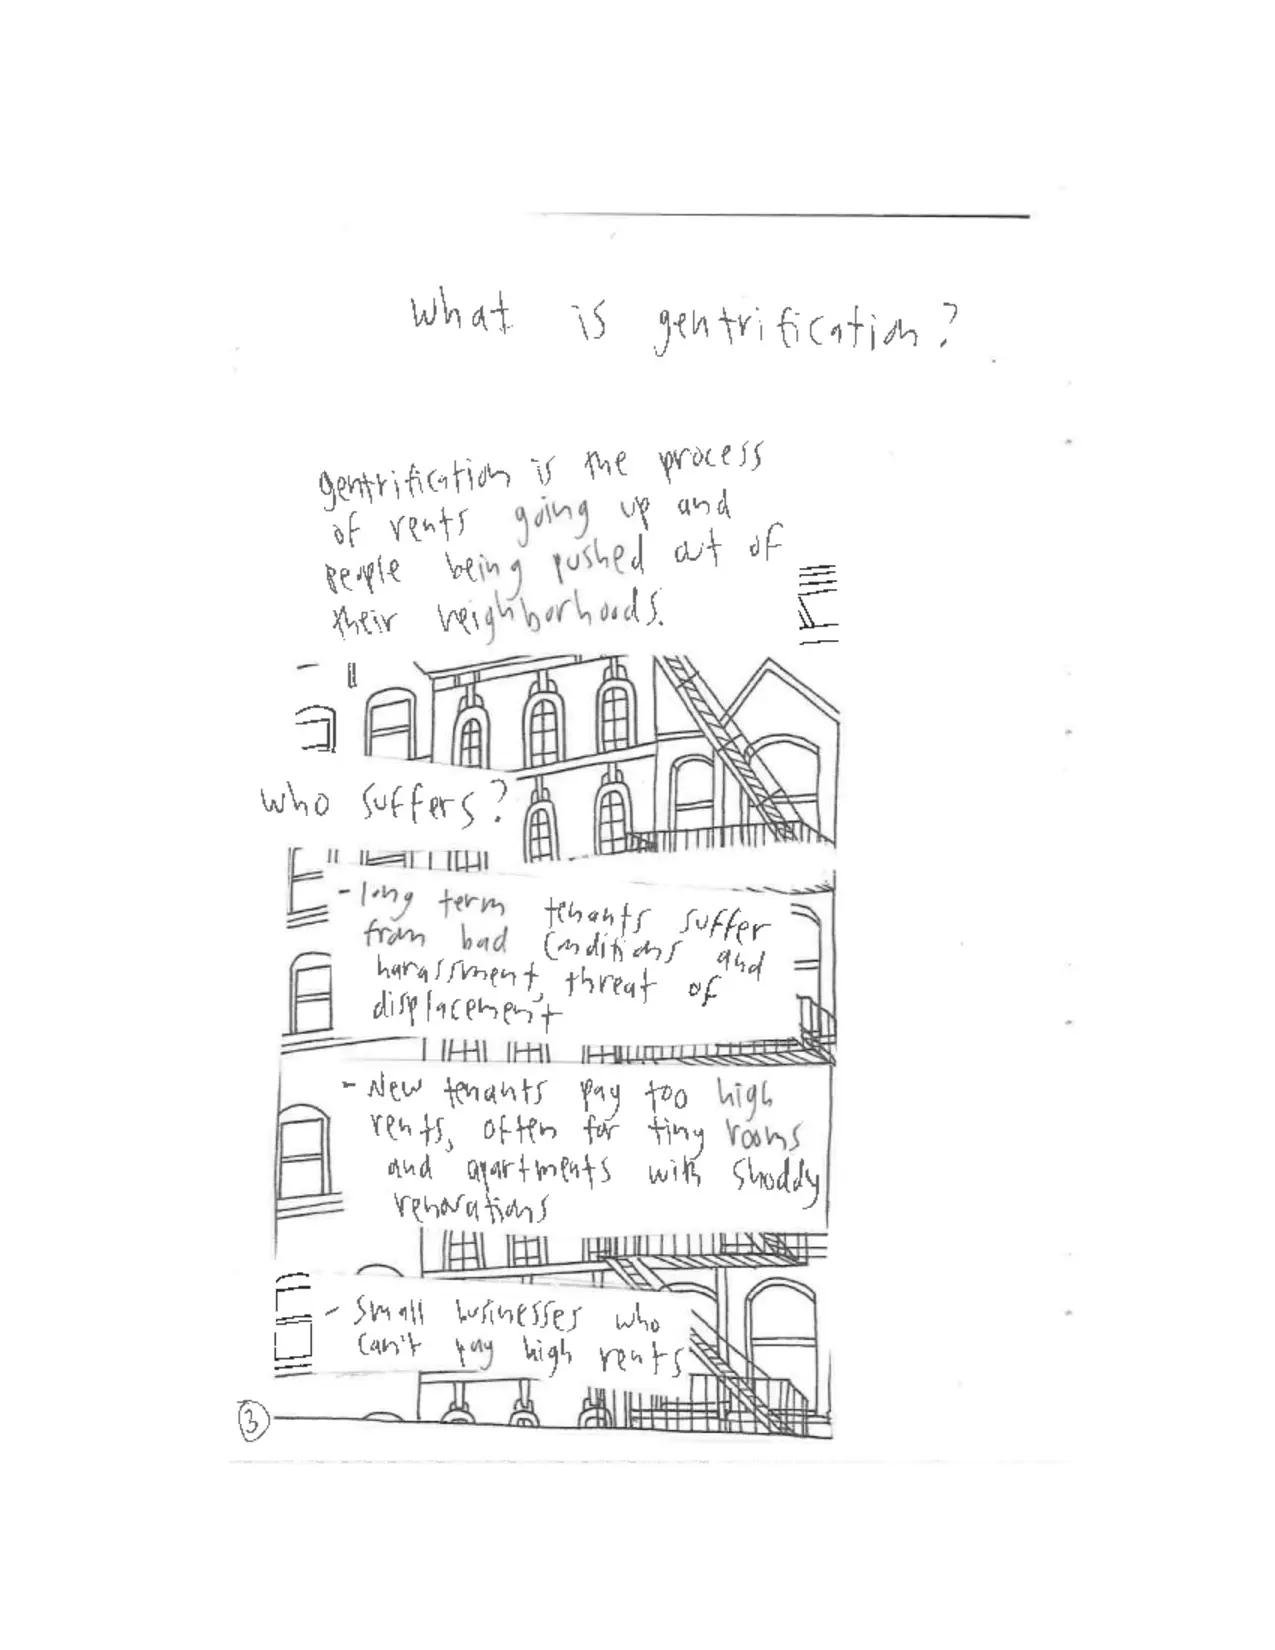 What is gentrification?
gentrification is the process
of rents going up and
people being pushed out of
their neighborhoods.
who suffers?
- long term tenants suffer
from bad conditions and
harassment, threat of
displacement
- New tenants pay too high
rents, often for tiny rooms
and apartments with shoddy
renovations
- small businesses who
can't pay high rents
3